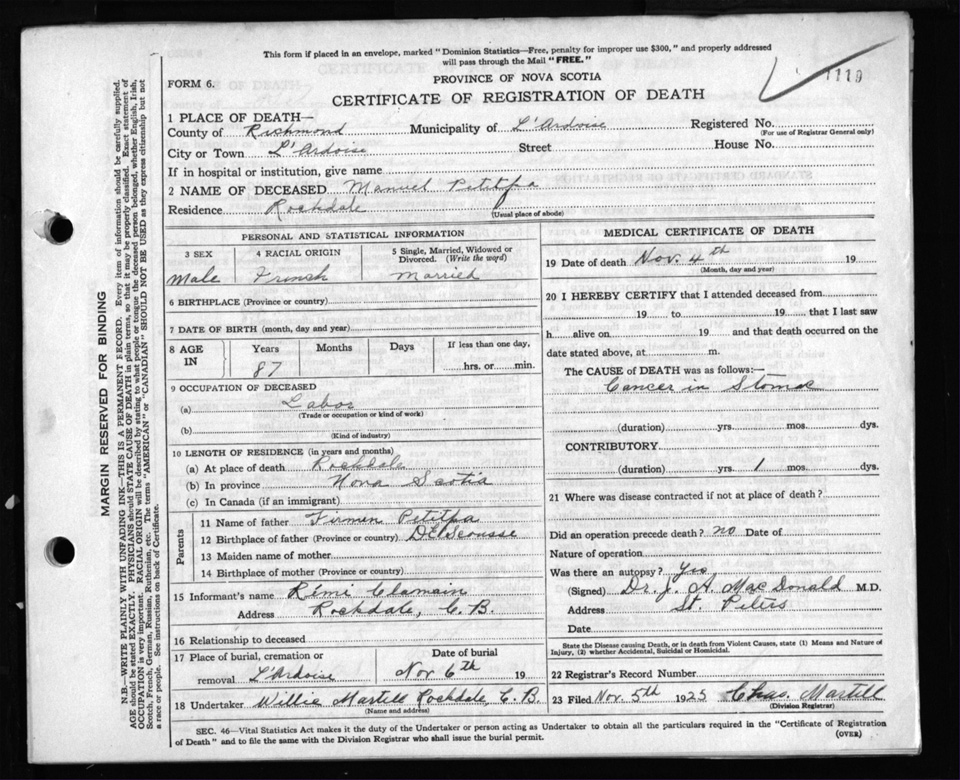 This form if placed in an envelope, marked "Dominion Statistics—Free, penalty for improper use $300," and properly addressed
will pass through the Mail "FREE."
1119
FORM 6.
PROVINCE OF NOVA SCOTIA
CERTIFICATE OF REGISTRATION OF DEATH
1 PLACE OF DEATH—
County of Richmond Municipality of L'Ardoise Registered No.
(For use of Registrar General only)
City or Town L'Ardoise Street House No.
If in hospital or institution, give name
2 NAME OF DECEASED Manuel Petitpa
Residence Rockdale
(Usual place of abode)
PERSONAL AND STATISTICAL INFORMATION
3 SEX
Male
4 RACIAL ORIGIN
French
5 Single, Married, Widowed or
Divorced. (Write the word)
Married
6 BIRTHPLACE (Province or country)
7 DATE OF BIRTH (month, day and year)
8 AGE
IN
Years
87
Months
Days
If less than one day,
hrs. or min.
9 OCCUPATION OF DECEASED
(a) Labor
(Trade or occupation or kind of work)
(b)
(Kind of industry)
10 LENGTH OF RESIDENCE (in years and months)
(a) At place of death Rockdale
(b) In province Nova Scotia
(c) In Canada (if an immigrant)
Parents
11 Name of father Firmen Petitpa
12 Birthplace of father (Province or country) DeEscousse
13 Maiden name of mother
14 Birthplace of mother (Province or country)
15 Informant's name Rémi Clamain
Address Rockdale, C. B.
16 Relationship to deceased
17 Place of burial, cremation or
removal L'Ardoise
Date of burial
Nov 6th 19
18 Undertaker Willie Martell Rockdale, C. B.
(Name and address)
MEDICAL CERTIFICATE OF DEATH
19 Date of death Nov. 4th 19
(Month, day and year)
20 I HEREBY CERTIFY that I attended deceased from
19 to 19 that I last saw
h alive on 19 and that death occurred on the
date stated above, at m.
The CAUSE of DEATH was as follows:—
Cancer in Stomac
(duration) yrs. mos. dys.
CONTRIBUTORY
(duration) yrs. 1 mos. dys.
21 Where was disease contracted if not at place of death?
Did an operation precede death? no Date of
Nature of operation
Was there an autopsy? Yes
(Signed) Dr. J. A. MacDonald M.D.
Address St. Peters
Date
State the Disease causing Death, or in death from Violent Causes, state (1) Means and Nature of
Injury, (2) whether Accidental, Suicidal or Homicidal.
22 Registrar's Record Number
23 Filed Nov. 5th 1925 Chas. Martell
(Division Registrar)
SEC. 46—Vital Statistics Act makes it the duty of the Undertaker or person acting as Undertaker to obtain all the particulars required in the "Certificate of Registration
of Death" and to file the same with the Division Registrar who shall issue the burial permit.
(OVER)
MARGIN RESERVED FOR BINDING
N.B.—WRITE PLAINLY WITH UNFADING INK—THIS IS A PERMANENT RECORD. Every item of information should be carefully supplied.
AGE should be stated EXACTLY. PHYSICIANS should STATE CAUSE OF DEATH in plain terms, so that it may be properly classified. Exact statement of
OCCUPATION is very important. RACIAL ORIGIN will be described by stating to what people or tongue the deceased person belonged, whether English, Irish,
Scotch, French, German, Russian, Ruthenian, etc. The terms "AMERICAN" or "CANADIAN" SHOULD NOT BE USED as they express citizenship but not
a race or people. See instructions on back of Certificate.